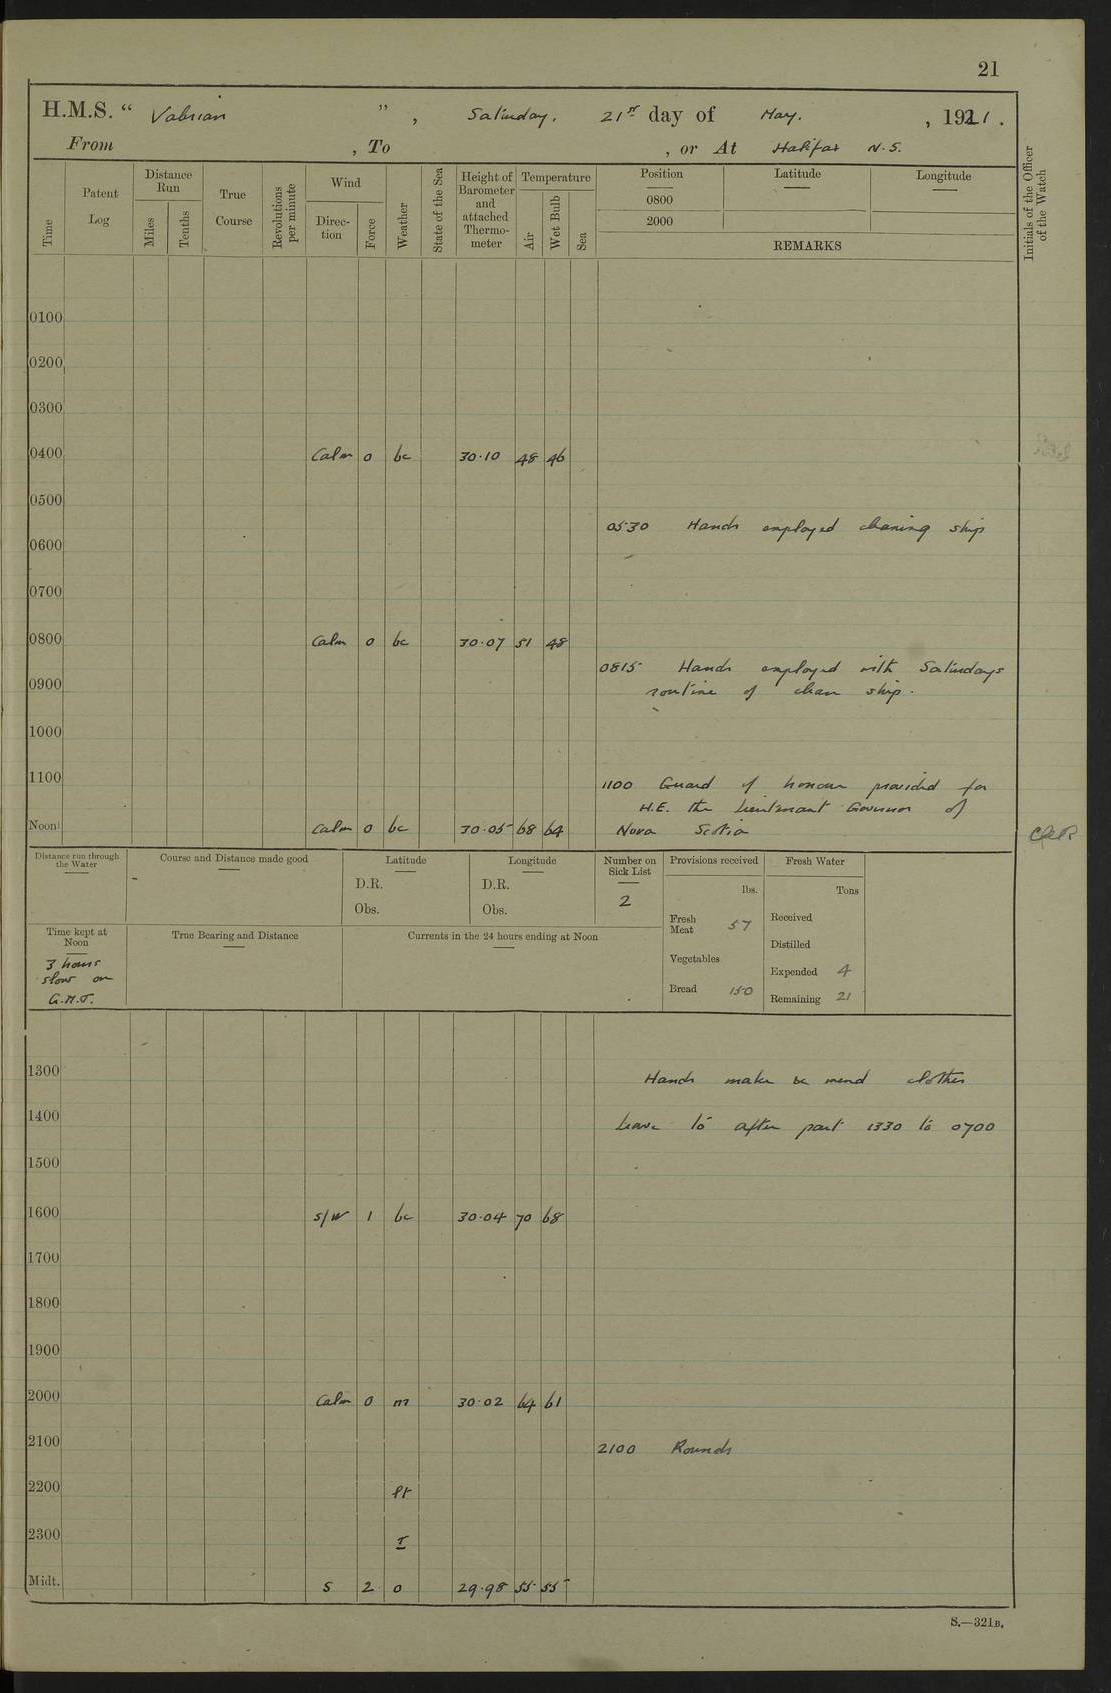 21
H.M.S. “ Valerian ” , Saturday, 21st day of May. , 1921 .
From , To , or At Halifax N.S.
Time
Patent Log
Distance Run
Miles
Tenths
True Course
Revolutions per minute
Wind
Direction
Force
Weather
State of the Sea
Height of Barometer and attached Thermometer
Temperature
Air
Wet Bulb
Sea
Position
0800
2000
Latitude
Longitude
REMARKS
Initials of the Officer of the Watch
0100
0200
0300
0400 Calm 0 bc 30·10 48 46
0500
0530 Hands employed cleaning ship
0600
0700
0800 Calm 0 bc 30·07 51 48
0815 Hands employed with Saturdays
0900 routine of clean ship.
1000
1100 1100 Guard of honour provided for
H.E. the Lieutenant Governor of
Noon Calm 0 bc 30·05 68 64 Nova Scotia
Distance run through the Water
Course and Distance made good
Latitude
D.R.
Obs.
Longitude
D.R.
Obs.
Number on Sick List
2
Provisions received
lbs.
Fresh Meat 57
Vegetables
Bread 150
Fresh Water
Tons
Received
Distilled
Expended 4
Remaining 21
Time kept at Noon
3 hours
slow on
G.M.T.
True Bearing and Distance
Currents in the 24 hours ending at Noon
1300 Hands make & mend clothes
1400 Leave to after part 1330 to 0700
1500
1600 S/W 1 bc 30·04 70 68
1700
1800
1900
2000 Calm 0 m 30·02 64 61
2100 2100 Rounds
2200
2300
Midt. S 2 o 29·98 55 55
S.—321B.